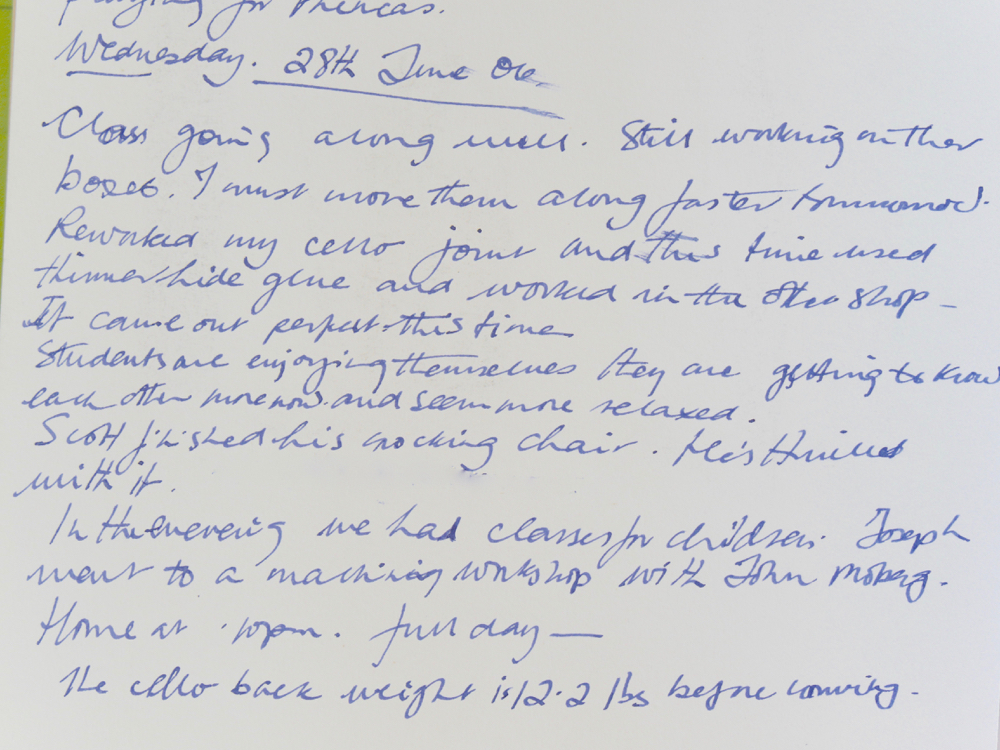 Wednesday. 28th June 06.
Class going along well. Still working on ther
boxes. I must move them along faster tommorrow.
Reworked my cello joint and this time used
thinner hide glue and worked in the other shop -
It came out perfect this time
Students are enjoying themselves they are getting to know
each other more now and seem more relaxed.
Scott finished his rocking chair. He's thrilled
with it.
In the evening we had classes for children. Joseph
went to a machining workshop with John Moberg.
Home at 10pm. full day —
The cello back weight is 12.2 lbs before